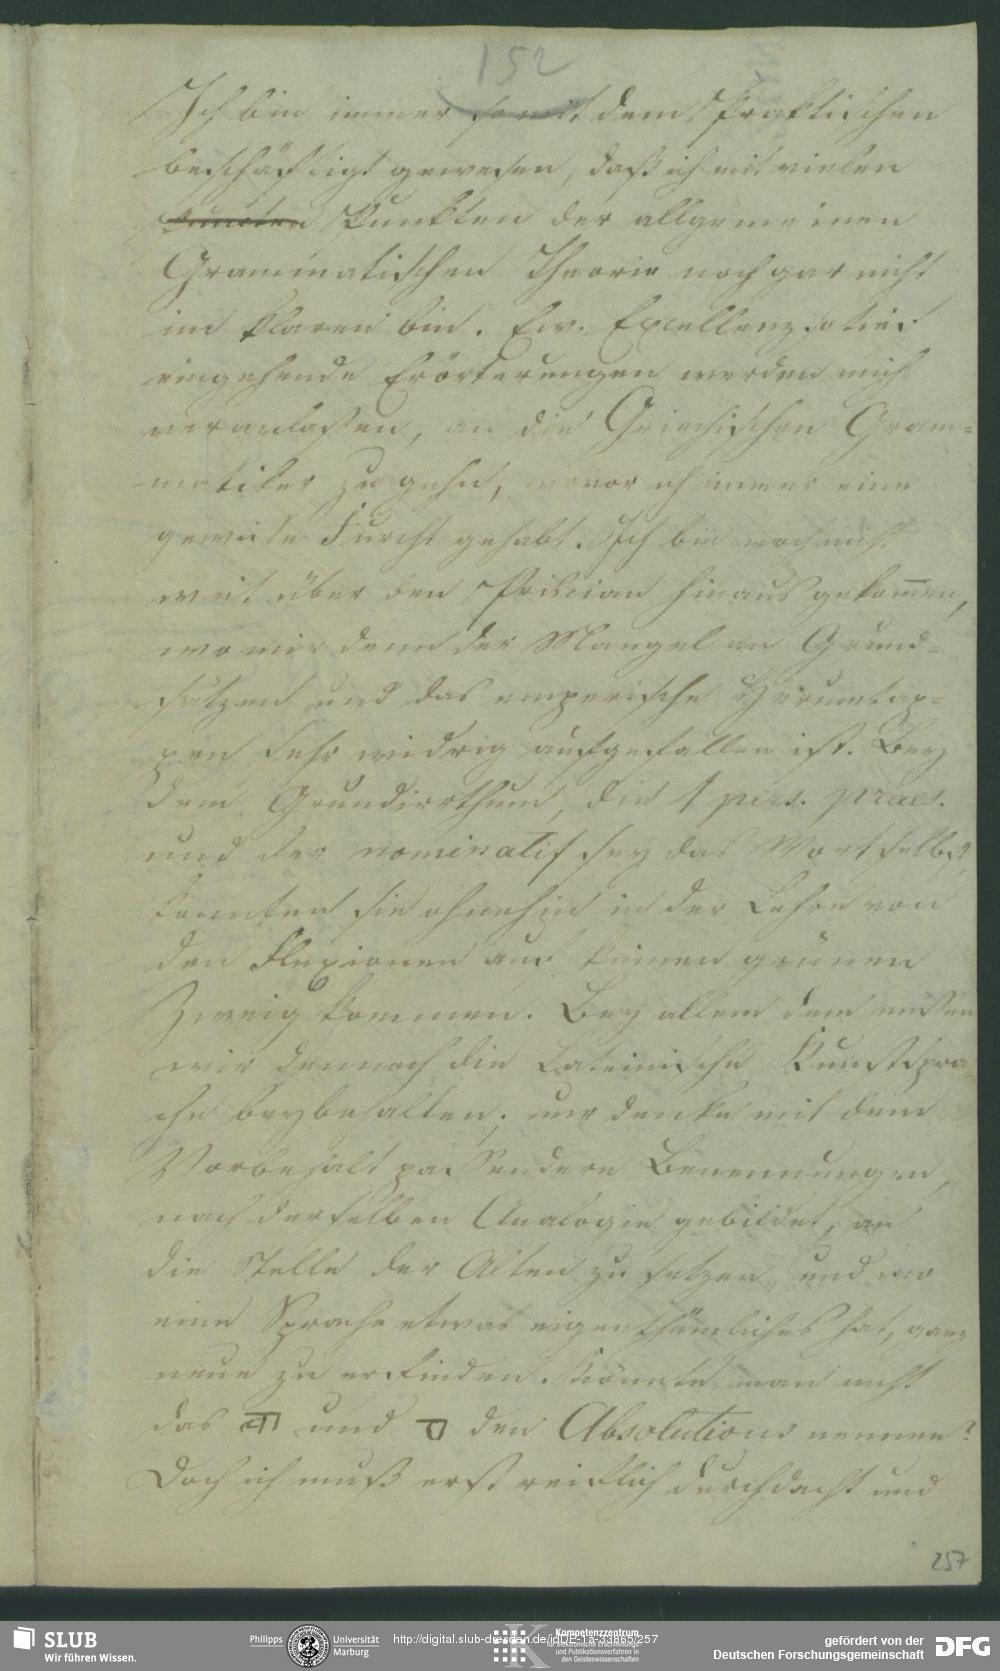 152
Ich bin immer so mit dem Praktischen
beschäftigt gewesen, daß ich mit vielen
Puncten Punkten der allgemeinen
Grammatischen Theorie noch gar nicht
im Klaren bin. Ew. Excellenz so tief
eingehende Erörterungen werden mich
veranlaßen, an die Griechischen Gram=
matiker zu gehn, wovor ich immer eine
gewisse Furcht gehabt. Ich bin noch nicht
weit über den Priscian hinaus gekom̅en,
wo mir denn der Mangel an Grund=
sätzen und das emperische Herumtap=
pen sehr widrig aufgefallen ist. Bey
dem Grundirrthum, die 1 pers. praes.
und der nominatif sey das Wort selbst,
konnten sie ohnehin in der Lehre von
den Flexionen auf keinen grünen
Zweig kommen. Bey allem dem müssen
wir dennoch die Lateinische Kunstspra
che beybehalten; nur denke mit dem
Vorbehalt passendere Benennungen,
nach derselben Analogie gebildet, an
die Stelle der Alten zu setzen, und wo
eine Sprache etwas eigenthümliches hat, ganz
neue zu erfinden. Könnte man nicht
das und den Absolutivus nennen?
Doch ich muß erst reiflich durchdacht und
257
SLUB
Wir führen Wissen.
Philipps Universität
Marburg
http://digital.slub-dresden.de/idDE-1a-33865/257
Kompetenzzentrum
für elektronische Erschließungs-
und Publikationsverfahren in
den Geisteswissenschaften
gefördert von der
Deutschen Forschungsgemeinschaft
DFG